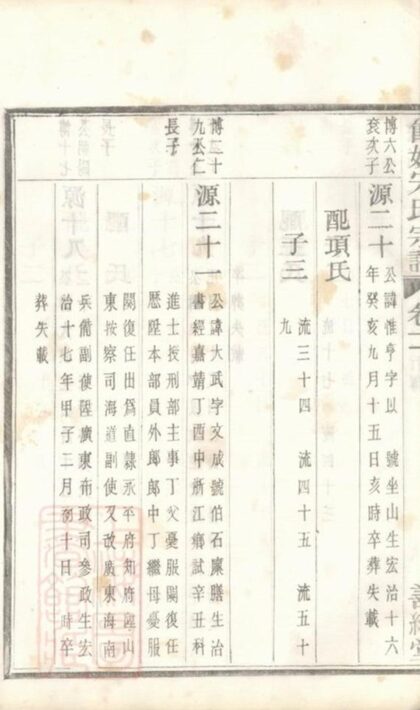 博六公
袞次子
源二十
公諱惟亨字以 號坐山生宏治十六
年癸亥九月十五日亥時卒葬失載
配項氏
子三
流三十四 流四十五 流五十
九
博二十
九公仁
長子
源二十一
公諱大武字文成號伯石廩膳生治
書經嘉靖丁酉中浙江鄉試辛丑科
進士授刑部主事丁父憂服闋復任
歷陞本部員外郎郎中丁繼母憂服
闋復任出為直隸永平府知府陞山
東按察司海道副使又改廣東海南
兵備副使陞廣東布政司參政生宏
治十七年甲子三月初十日 時卒
葬失載